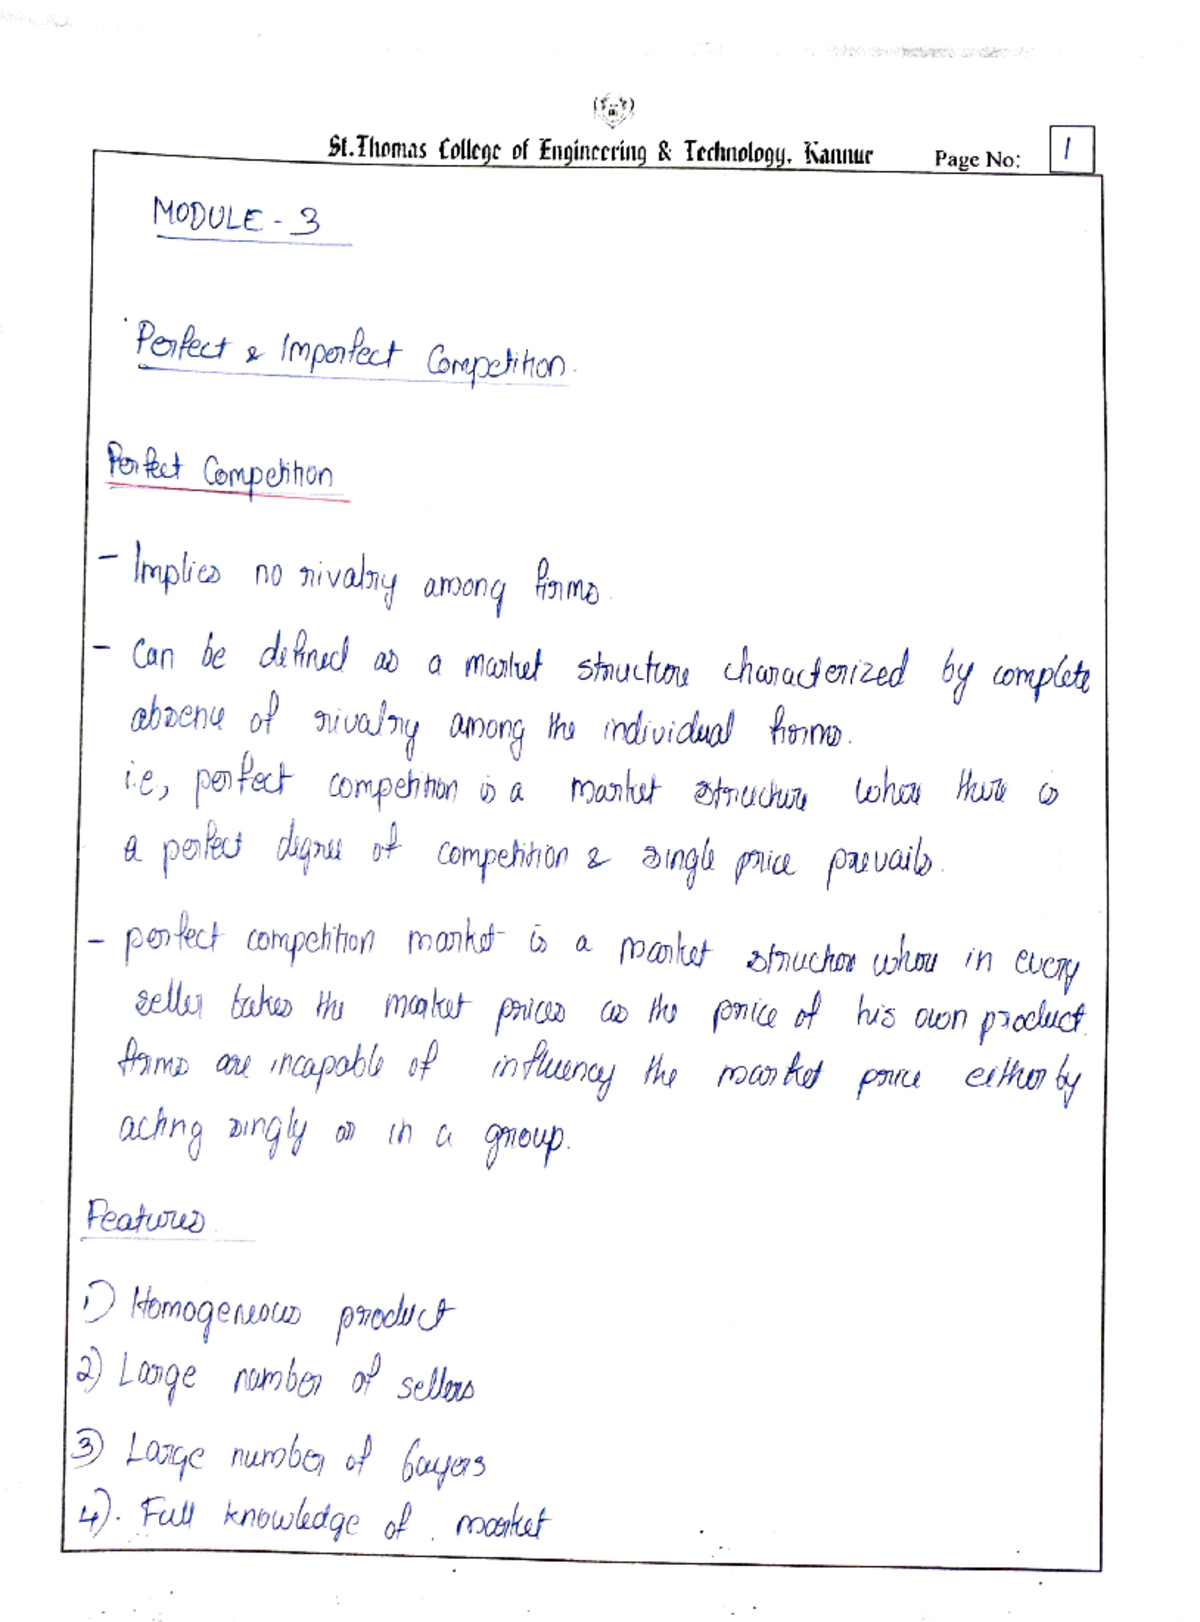 St. Thomas College of Engineering & Technology, Kannur Page No: 1
MODULE - 3
Perfect & Imperfect Competition.
Perfect Competition
- Implies no rivalry among firms.
- Can be defined as a market structure characterized by complete
absence of rivalry among the individual firms.
i.e., perfect competition is a market structure where there is
a perfect degree of competition & single price prevails.
- perfect competition market is a market structure where in every
seller takes the market prices as the price of his own product.
firms are incapable of influency the market price either by
acting singly or in a group.
Features
1) Homogeneous product
2) Large number of sellers
3) Large number of buyers
4). Full knowledge of market